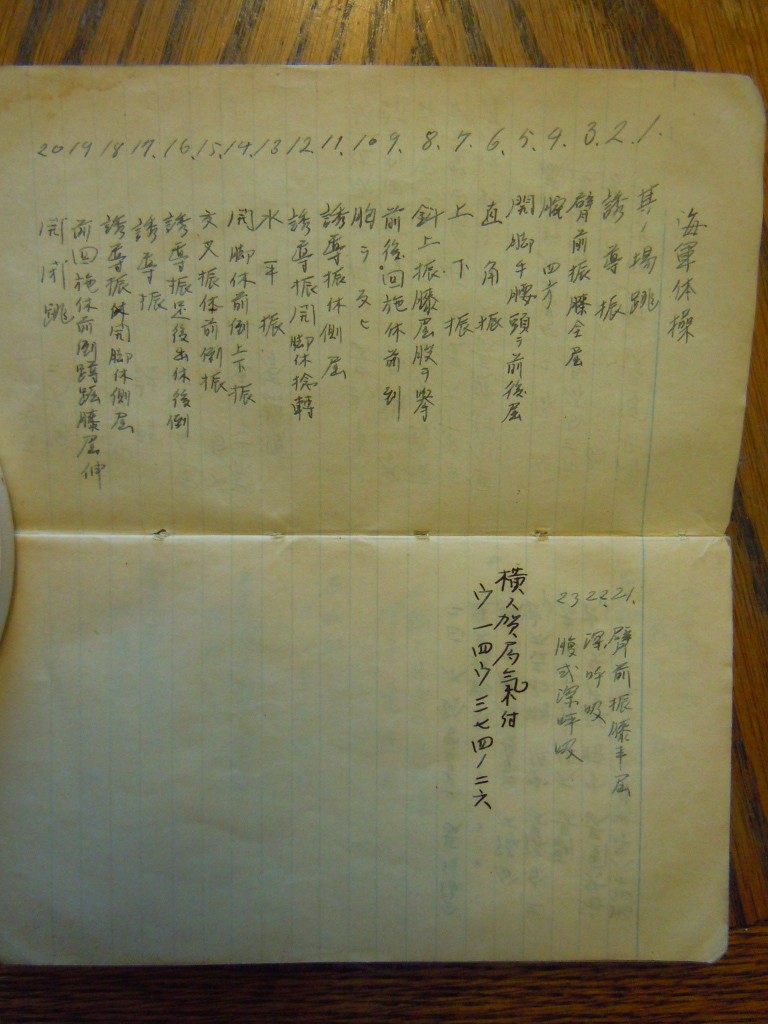 海軍体操
1. 其ノ場跳
2. 誘導振
3. 臂前振膝全屈
4. 腕四方
5. 開脚手腰頭ヲ前後屈
6. 直角振
7. 上下振
8. 斜上振膝屈股ヲ挙
9. 前後回施体前倒
10 胸ヲ反ヒ
11. 誘導振体側屈
12 誘導振開脚体捻轉
13 水平振
14. 開脚体前倒上下振
15. 交叉振体前倒振
16. 誘導振足後出体後倒
17. 誘導振
18 誘導振開脚体側屈
19 前回施体前倒蹲踞膝屈伸
20 開閉跳
21. 臂前振膝半屈
22. 深呼吸
23 腹式深呼吸
横人賀局氣付
ウ一四ウ三七四ノ二六